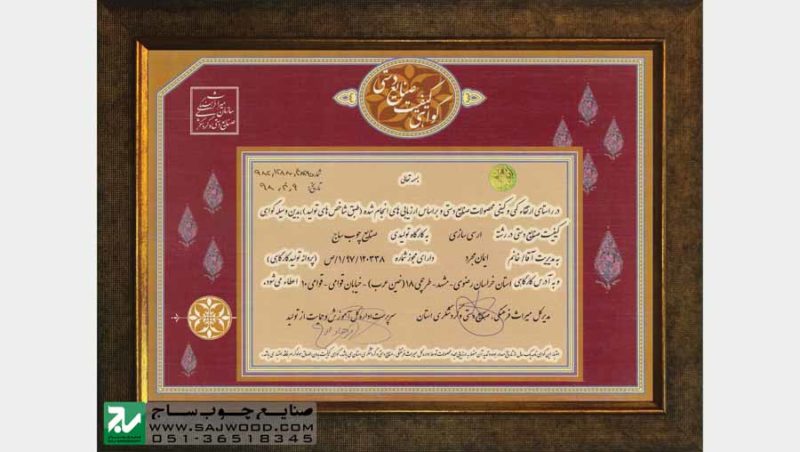 گواهی کیفیت صنایع دستی
سازمان میراث فرهنگی
صنایع دستی و گردشگری
بسمه تعالی
شماره
تاریخ ۹۸
در راستای ارتقاء کمی و کیفی محصولات صنایع دستی و براساس ارزیابی های انجام شده (طبق شاخص های تولید)، بدین وسیله گواهی
کیفیت صنایع دستی در رشته ارسی سازی به کارگاه تولیدی صنایع چوب ساج
به مدیریت آقا/خانم ایمان مجرد دارای مجوز شماره ۱۲۰۳۳۸/۱/۹۷/ص (پروانه تولید کارگاهی)
و به آدرس کارگاهی استان خراسان رضوی - مشهد - طرحچی ۱۸ (نفین عرب) - خیابان قوامی - قوامی ۱۰ اعطاء می شود.
مدیرکل میراث فرهنگی، صنایع دستی و گردشگری استان
سرپرست اداره کل آموزش و حمایت از تولید
صنایع چوب ساج
WWW.SAJWOOD.COM
051-36518345